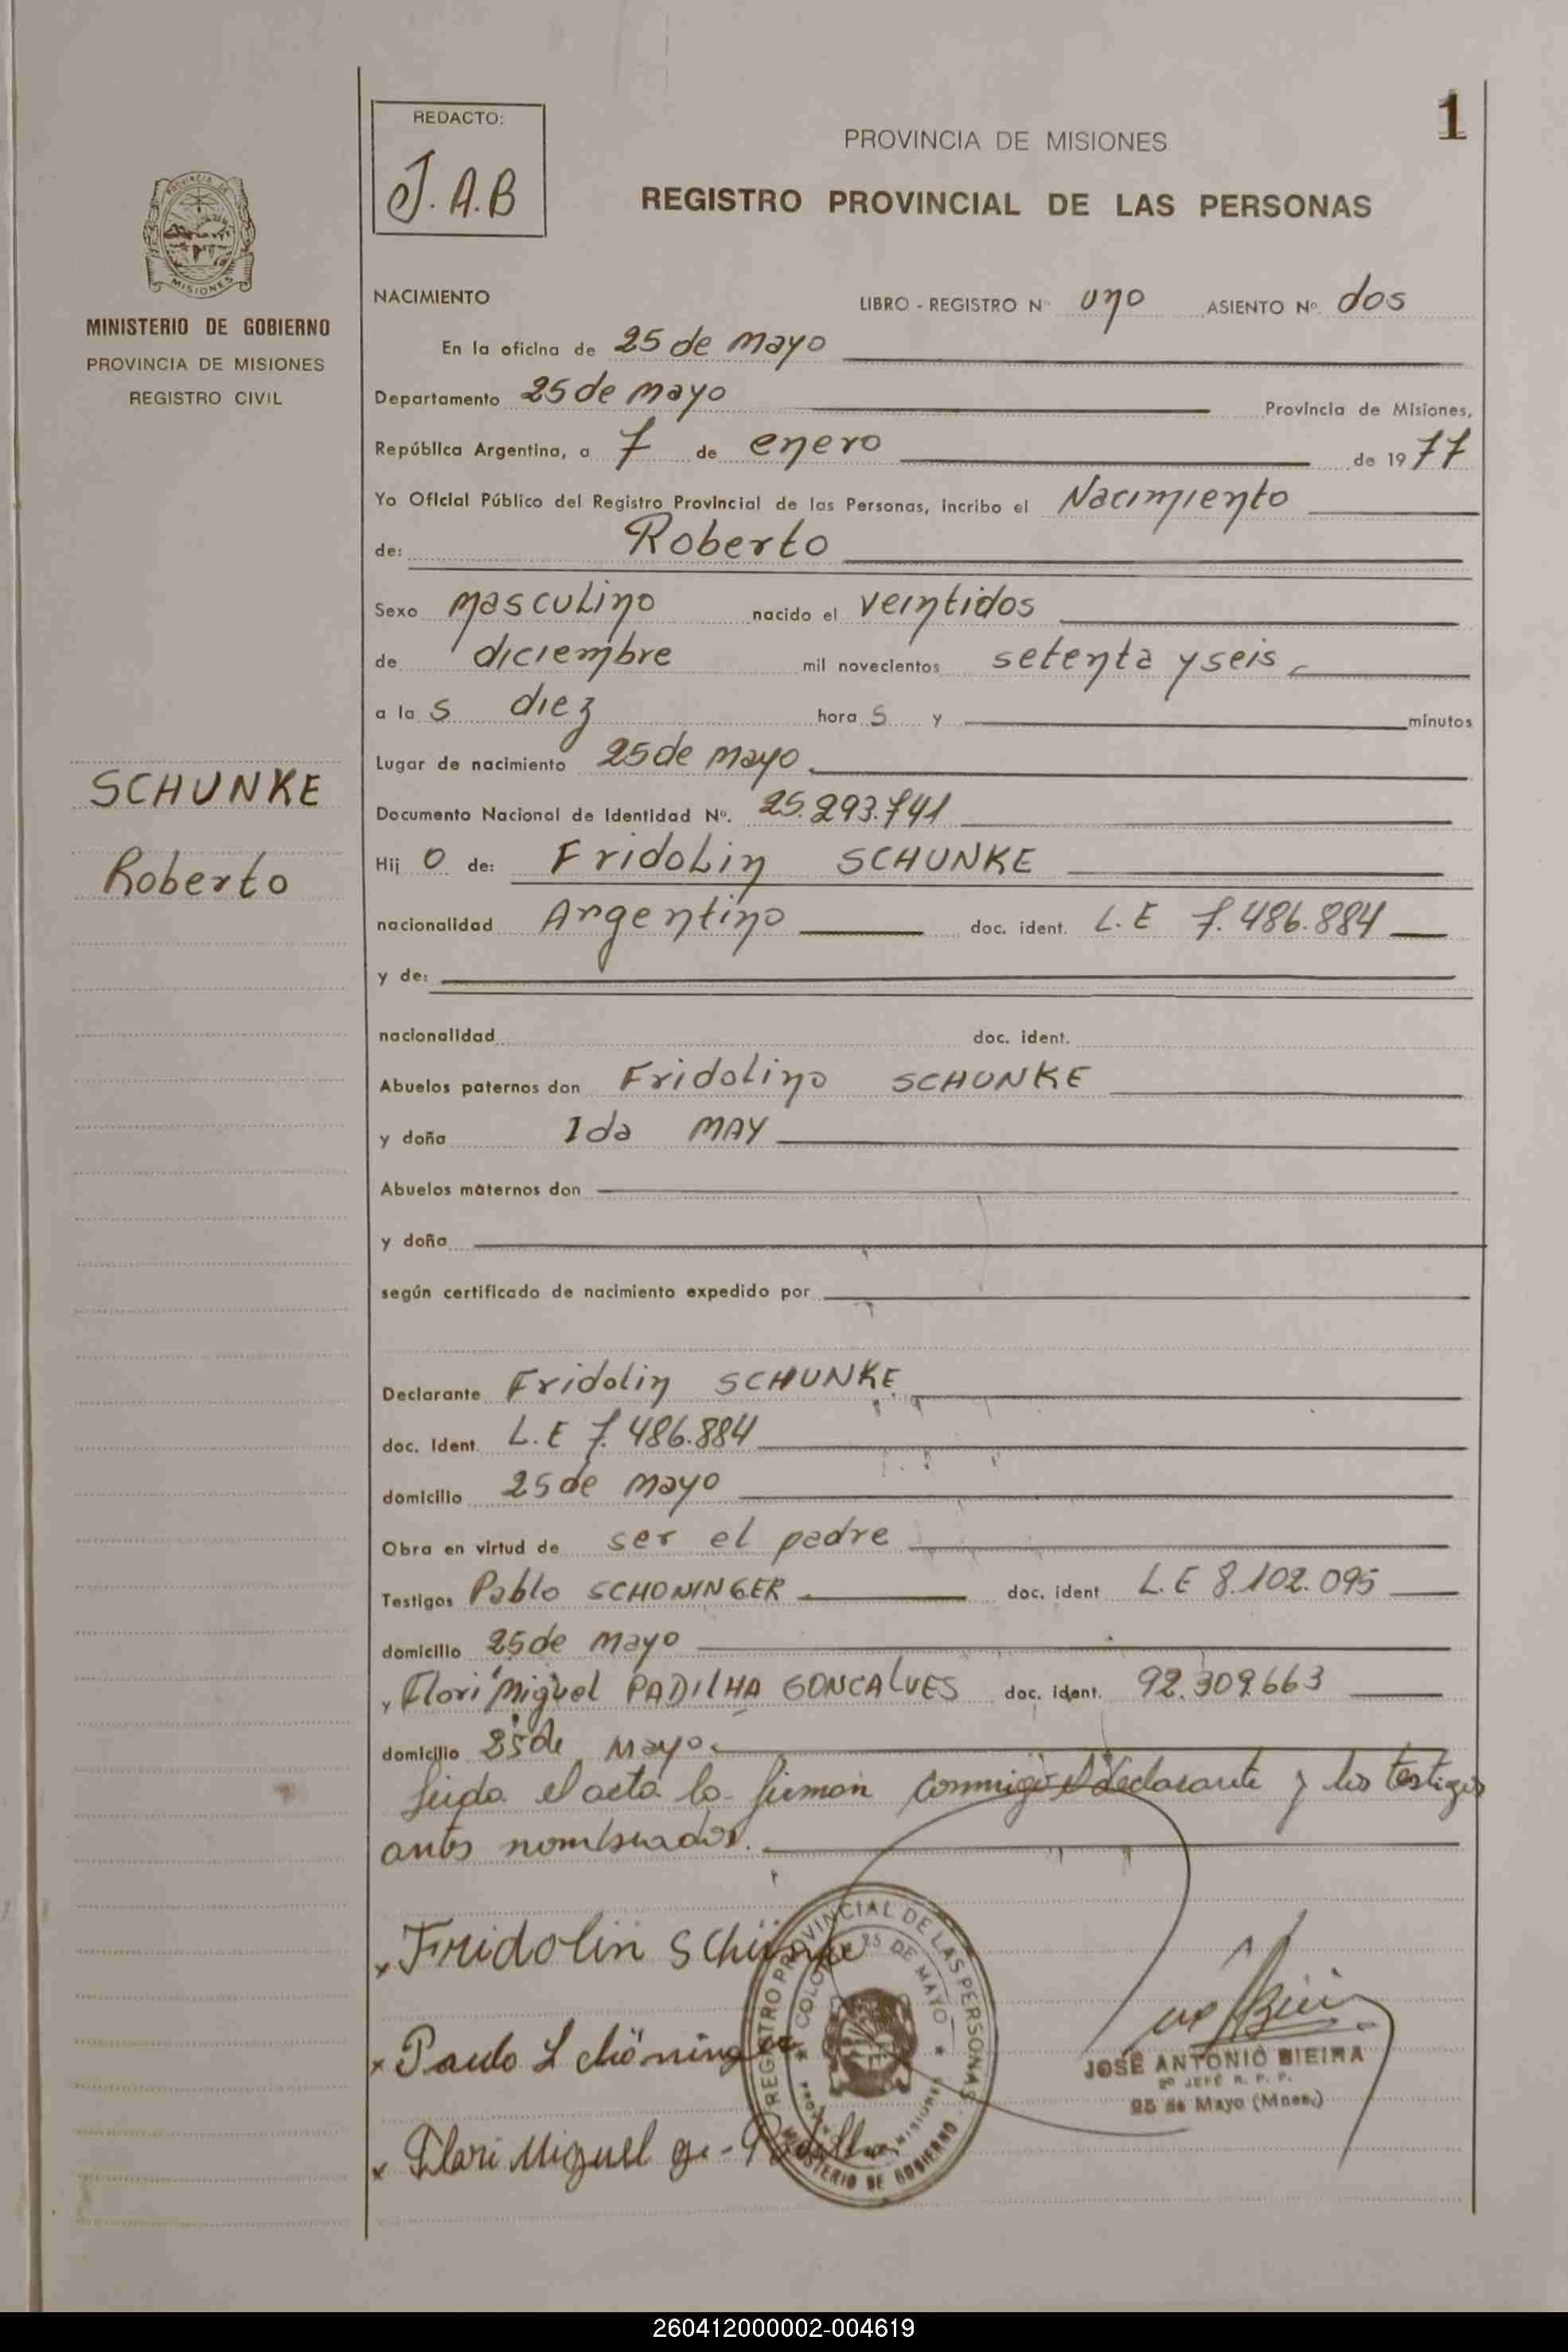 REDACTO:
J.A.B
1
PROVINCIA DE MISIONES
REGISTRO PROVINCIAL DE LAS PERSONAS
PROVINCIA DE
MISIONES
MINISTERIO DE GOBIERNO
PROVINCIA DE MISIONES
REGISTRO CIVIL
SCHUNKE
Roberto
NACIMIENTO LIBRO - REGISTRO Nº uno ASIENTO Nº. dos
En la oficina de 25 de mayo
Departamento 25 de mayo Provincia de Misiones,
República Argentina, a 7 de enero de 1977
Yo Oficial Público del Registro Provincial de las Personas, incribo el Nacimiento
de: Roberto
Sexo masculino nacido el veintidos
de diciembre mil novecientos setenta y seis
a la s diez hora s y minutos
Lugar de nacimiento 25 de mayo.
Documento Nacional de Identidad Nº. 25.293.741
Hij o de: Fridolin SCHUNKE
nacionalidad Argentino doc. ident. L.E 7.486.884
y de:
nacionalidad doc. ident.
Abuelos paternos don Fridolino SCHUNKE
y doña Ida MAY
Abuelos maternos don
y doña
según certificado de nacimiento expedido por
Declarante Fridolin SCHUNKE
doc. Ident. L.E 7.486.884
domicilio 25 de mayo
Obra en virtud de ser el padre
Testigos Pablo SCHONINGER doc. ident L.E 8.102.095
domicilio 25 de mayo
y Flori Miguel PADILHA GONCALVES doc. ident. 92.309.663
domicilio 25 de Mayo.
Leida el acta la firman conmigo el declarante y los testigos
antes nombrados.
x Fridolin Schünke
x Paulo Schöninger
x Flori Miguel g.- Padilha
REGISTRO PROVINCIAL DE LAS PERSONAS
25 DE MAYO
MINISTERIO DE GOBIERNO
JOSE ANTONIO BIEIRA
2º JEFE R. P. P.
25 de Mayo (Mnes.)
260412000002-004619